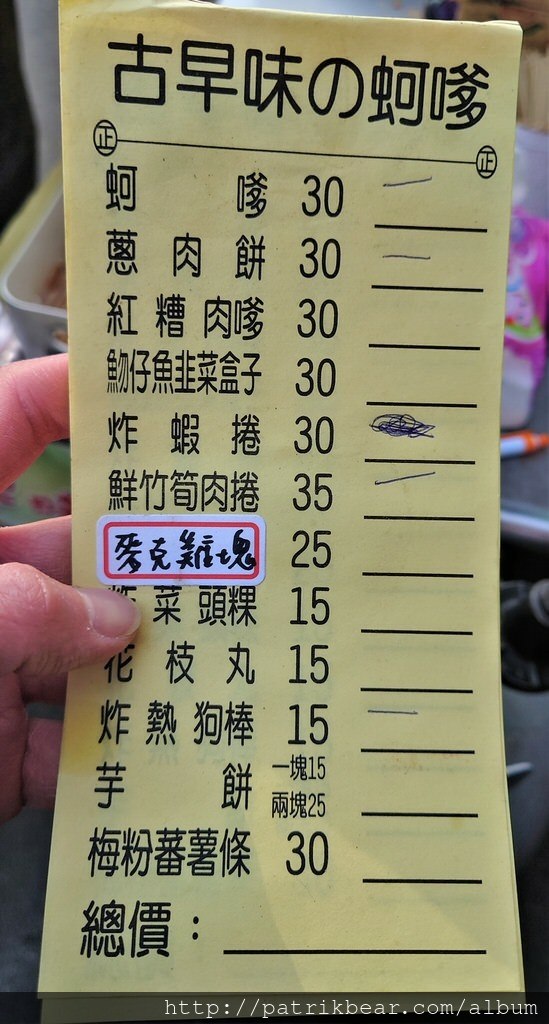 古早味の蚵嗲
正 正
蚵嗲 30 一
蔥肉餅 30 一
紅糟肉嗲 30
魩仔魚韭菜盒子 30
炸蝦捲 30
鮮竹筍肉捲 35 一
麥克雞塊 25
炸菜頭粿 15
花枝丸 15
炸熱狗棒 15 一
芋餅 一塊15
兩塊25
梅粉蕃薯條 30
總價：
http://patrikbear.com/album